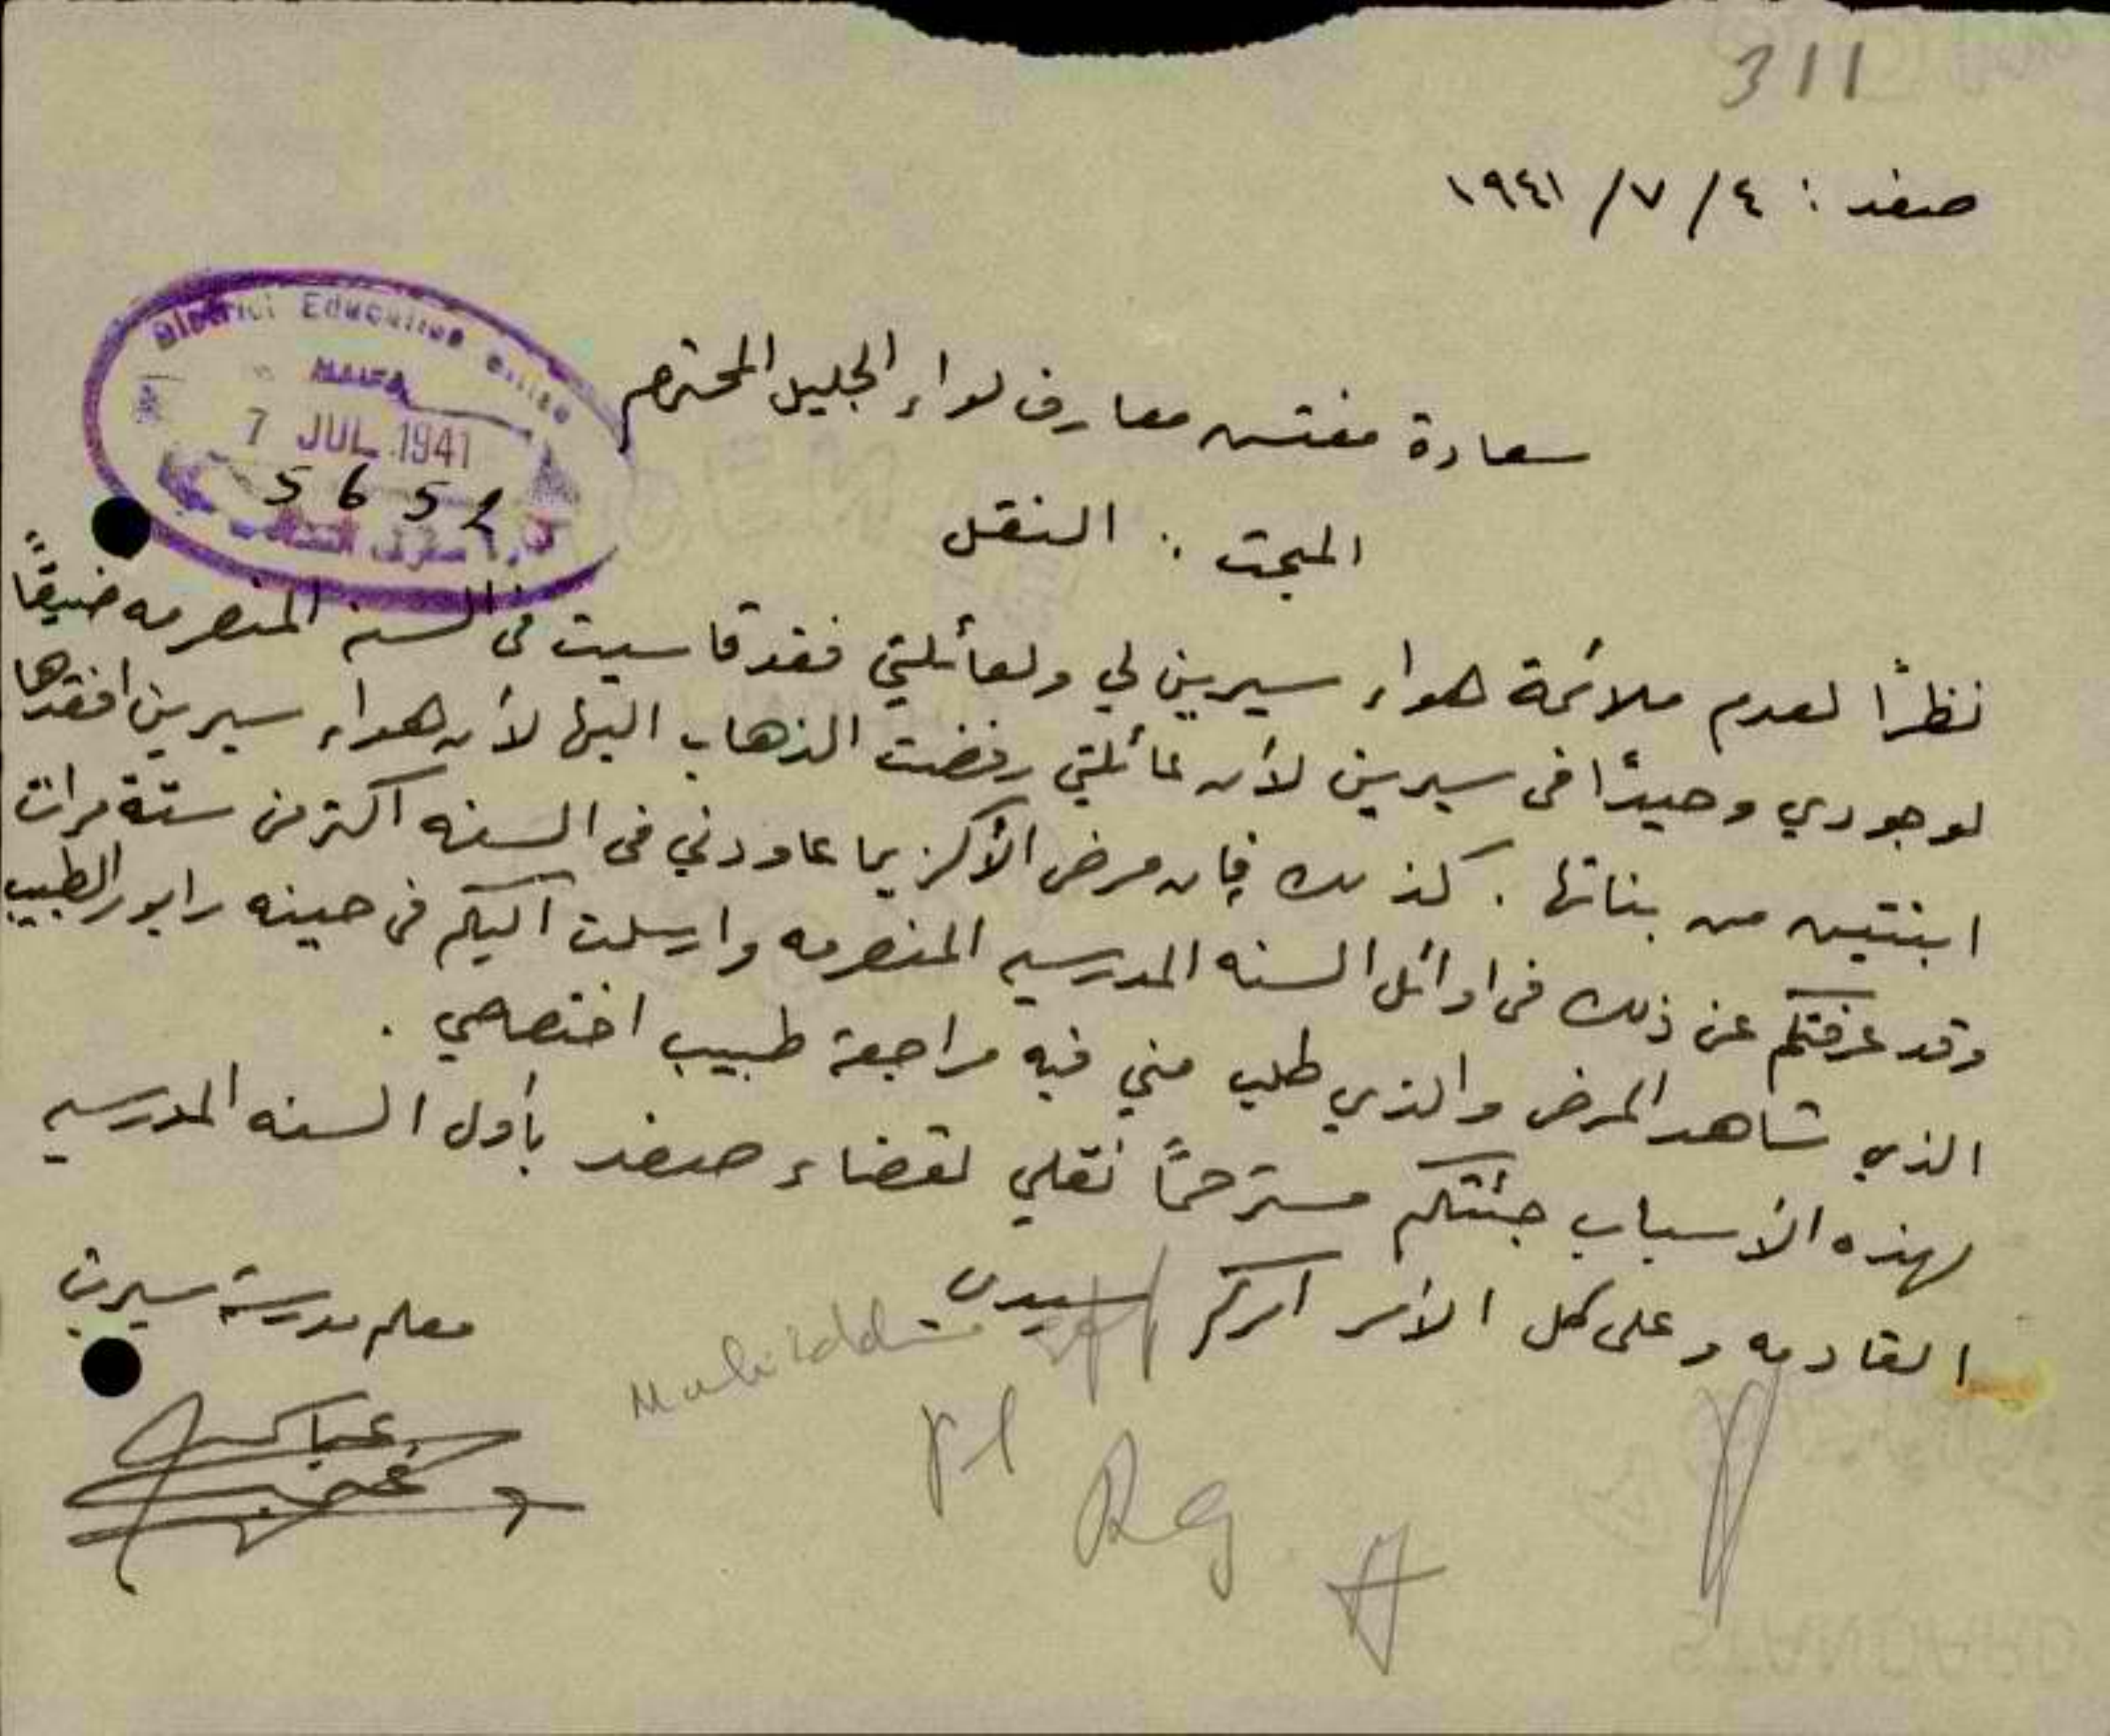 311
صفد : ٤ / ٧ / ١٩٤١
District Education Office
HAIFA
7 JUL 1941
565
سعادة مفتش معارف لواء الجليل المحترم
المبحث : النقل
نظراً لعدم ملائمة هواء سيرين لي ولعائلتي فقد قاسيت في السنه المنصرمه ضيقاً
لوجودي وحيداً في سيرين لأن عائلتي رفضت الذهاب اليها لأن هواء سيرين افقدها
ابنتين من بناتها . كذلك فإن مرض الأكزيما عاودني في السنه اكثر من ستة مرات
وقد عرفتكم عن ذلك في اوائل السنه المدرسيه المنصرمه وارسلت اليكم في حينه رابور الطبيب
الذي شاهد المرض والذي طلب مني فيه مراجعة طبيب اختصاصي .
لهذه الأسباب جئتكم مسترحماً نقلي لقضاء صفد بأول السنه المدرسيه
القادمه وعلى كل الأمر امركم سيدي
معلم مدرسة سيرين
عباس
Muhiddin
Rg